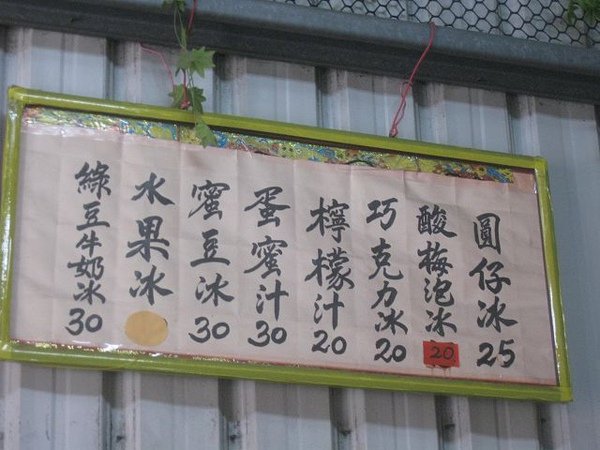 圓仔冰 25
酸梅泡冰 20
巧克力冰 20
檸檬汁 20
蛋蜜汁 30
蜜豆冰 30
水果冰
綠豆牛奶冰 30